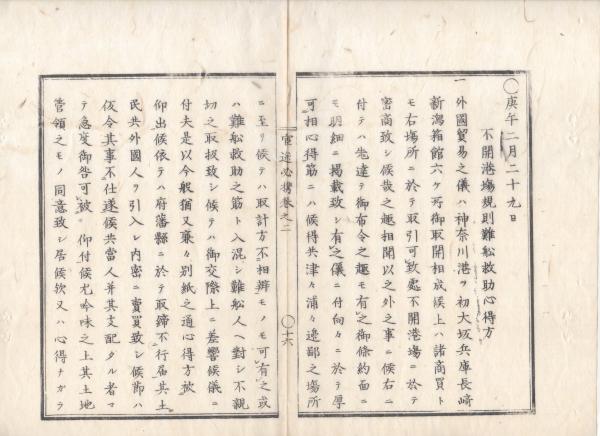 〇庚午二月二十九日
不開港場規則難船救助心得方
一外國貿易之儀ハ神奈川港ヲ初大坂兵庫長崎
新潟箱館六ケ所御取開相成候上ハ諸商買ト
モ右場所ニ於テ取引可致處不開港場ニ於テ
密商致シ候哉之趣相聞以之外之事ニ候右ニ
付テハ先達テ御布令之趣モ有之御條約面ニ
モ明細ニ掲載致シ有之儀ニ付向々ニ於テ厚
可相心得筋ニハ候得共津々浦々邊鄙之場所
官途必携巻之二
〇十六
ニ至リ候テハ取計方不相辨モノモ可有之或
ハ難船救助之筋ト入混シ難船人ヘ對シ不親
切之取扱致シ候テハ御交際上ニ差響候儀ニ
付夫是以今般猶又兼々別紙之通心得方被
仰出候依テハ府藩縣ニ於テ取締不行届其土
民共外國人ヲ引入レ内密ニ賣買致シ候節ハ
仮令其事不仕遂候共當人并其支配タル者マ
テ急度御咎可被 仰付候尤吟味之上其土地
管領之モノ同意致シ居候欤又ハ心得ナカラ